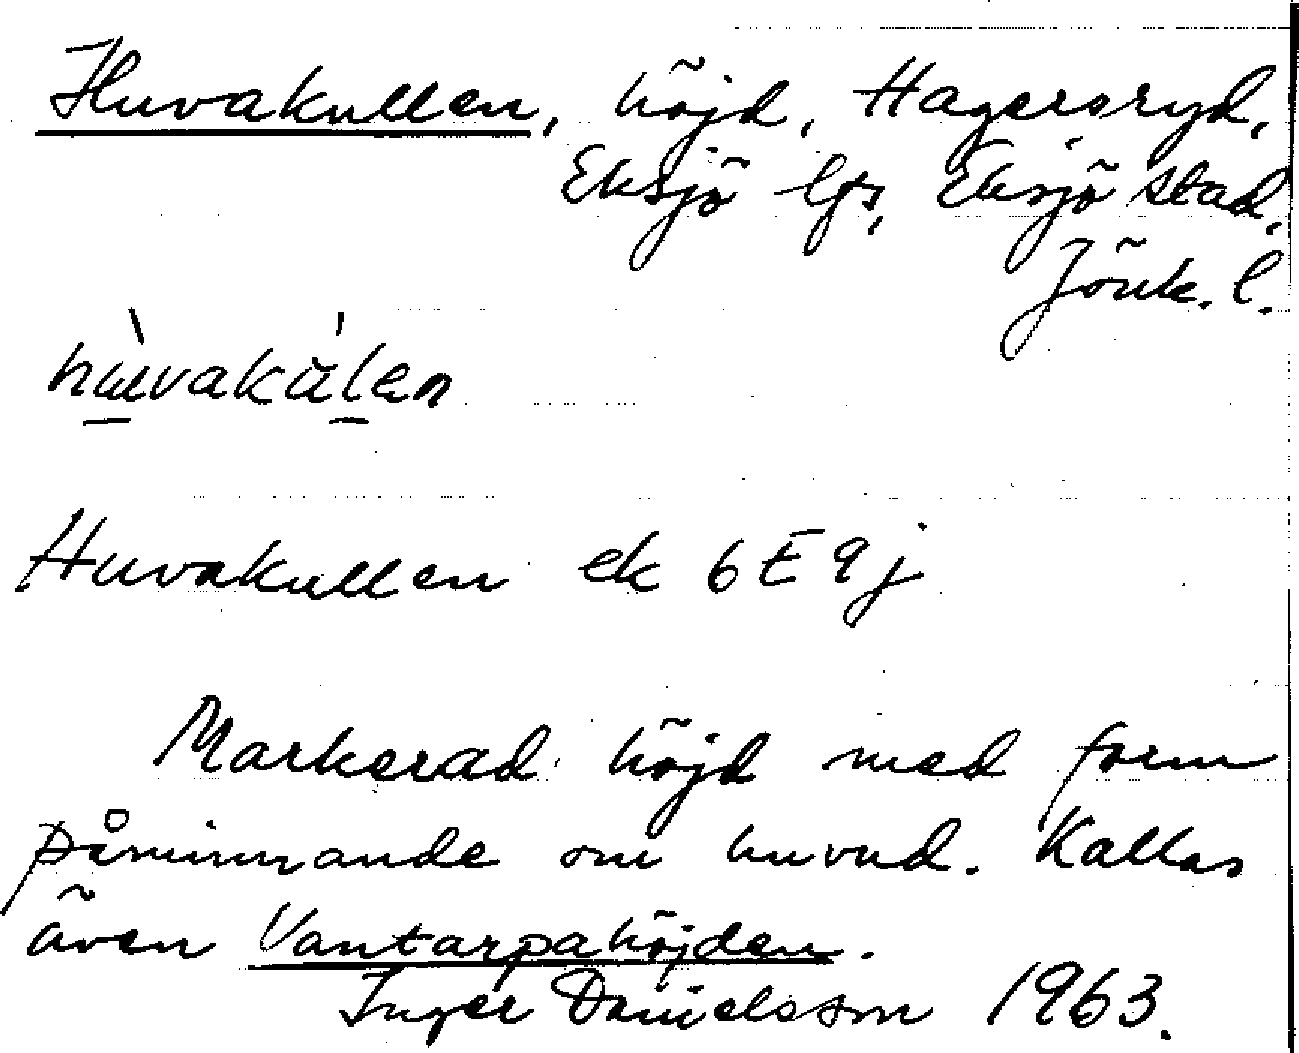 Huvakullen, höjd, Hagersryd,
Eksjö lfs, Eksjö stad,
Jönk. l.
hùvakúlen
Huvakullen ek 6E9j
Markerad höjd med form
påminnande om huvud. Kallas
även Vantarpahöjden.
Inger Danielsson 1963.